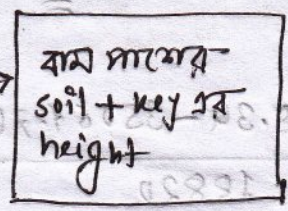 বাম পাশের
soil + key এর
height